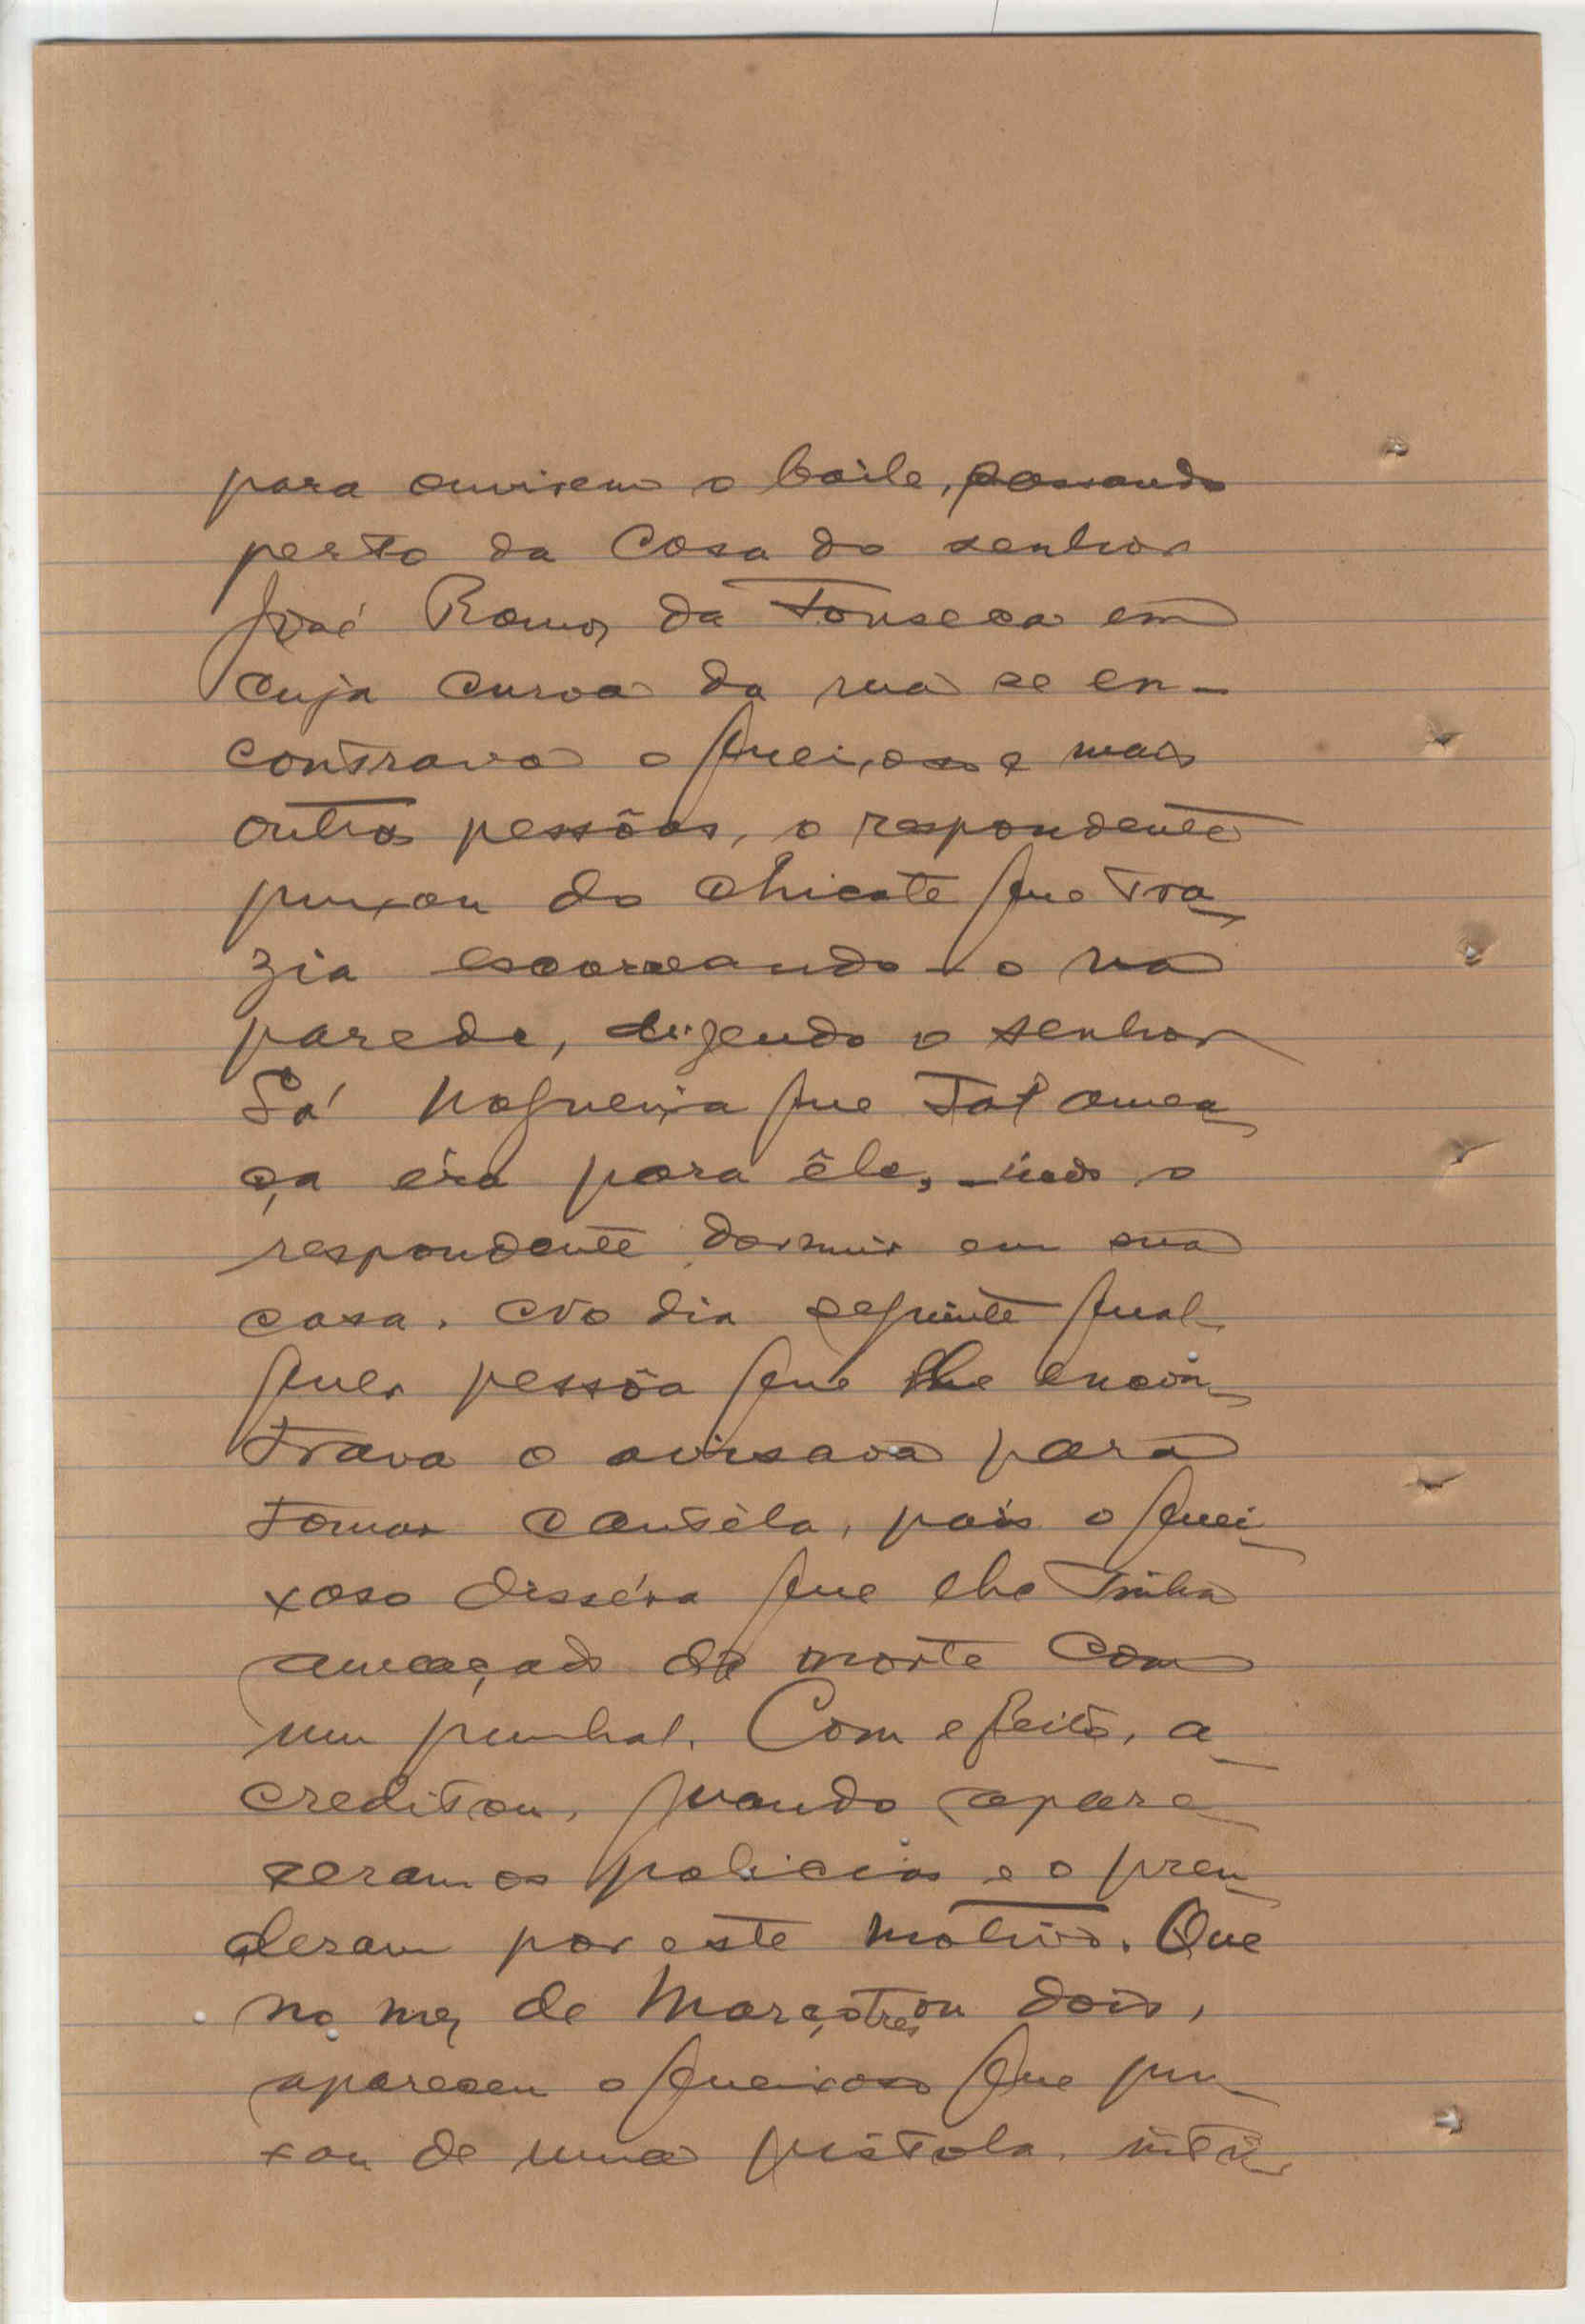 para ouvirem o baile, passando
perto da Casa do senhor
José Ramos da Fonseca em
cuja curva da rua se en-
contrava o queixoso e mais
outras pessôas, o respondente
puxou do chicote que tra-
zia escorreando-o na
parede, dizendo o senhor
Sá Nogueira que Tal amea-
ça éra para êle, indo o
respondente dormir em sua
casa. No dia seguinte qual-
quer pessôa que lhe encon-
trava o avisava para
tomar cautéla, pois o quei-
xoso disséra que lhe tinha
ameaçado de morte com
um punhal. Com efeito, a-
creditou, quando apare-
ceram os policias e o pren-
deram por este motivo. Que
no mez de Março, tres ou dois,
apareceu o queixoso que pu-
xou de uma pistola, inti-